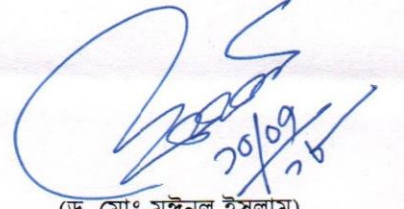 ১০/০৭
১৮
(ড. মোঃ মঈনুল ইসলাম)